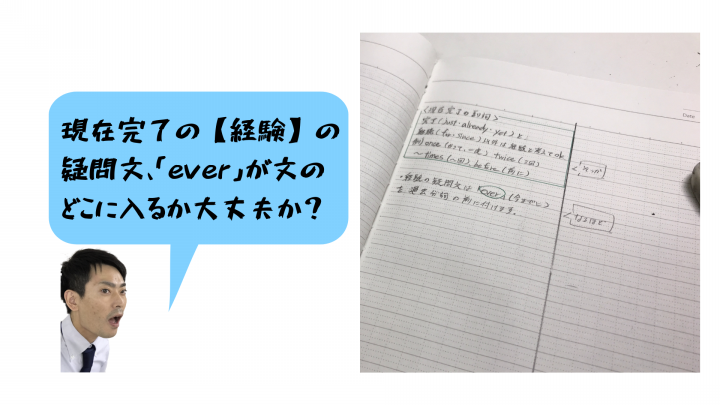 現在完了の【経験】の
疑問文、「ever」が文の
どこに入るか大丈夫か?
Date
〈現在完了の副詞〉
完了(just・already・yet)と
(for・since)以外は経験と考えてOK
once(かつて、一度) twice(2回)
〜times(〜回) before(前に)
・経験の疑問文は「ever」(今までに)
を過去分詞の前に付けます。
なるほど